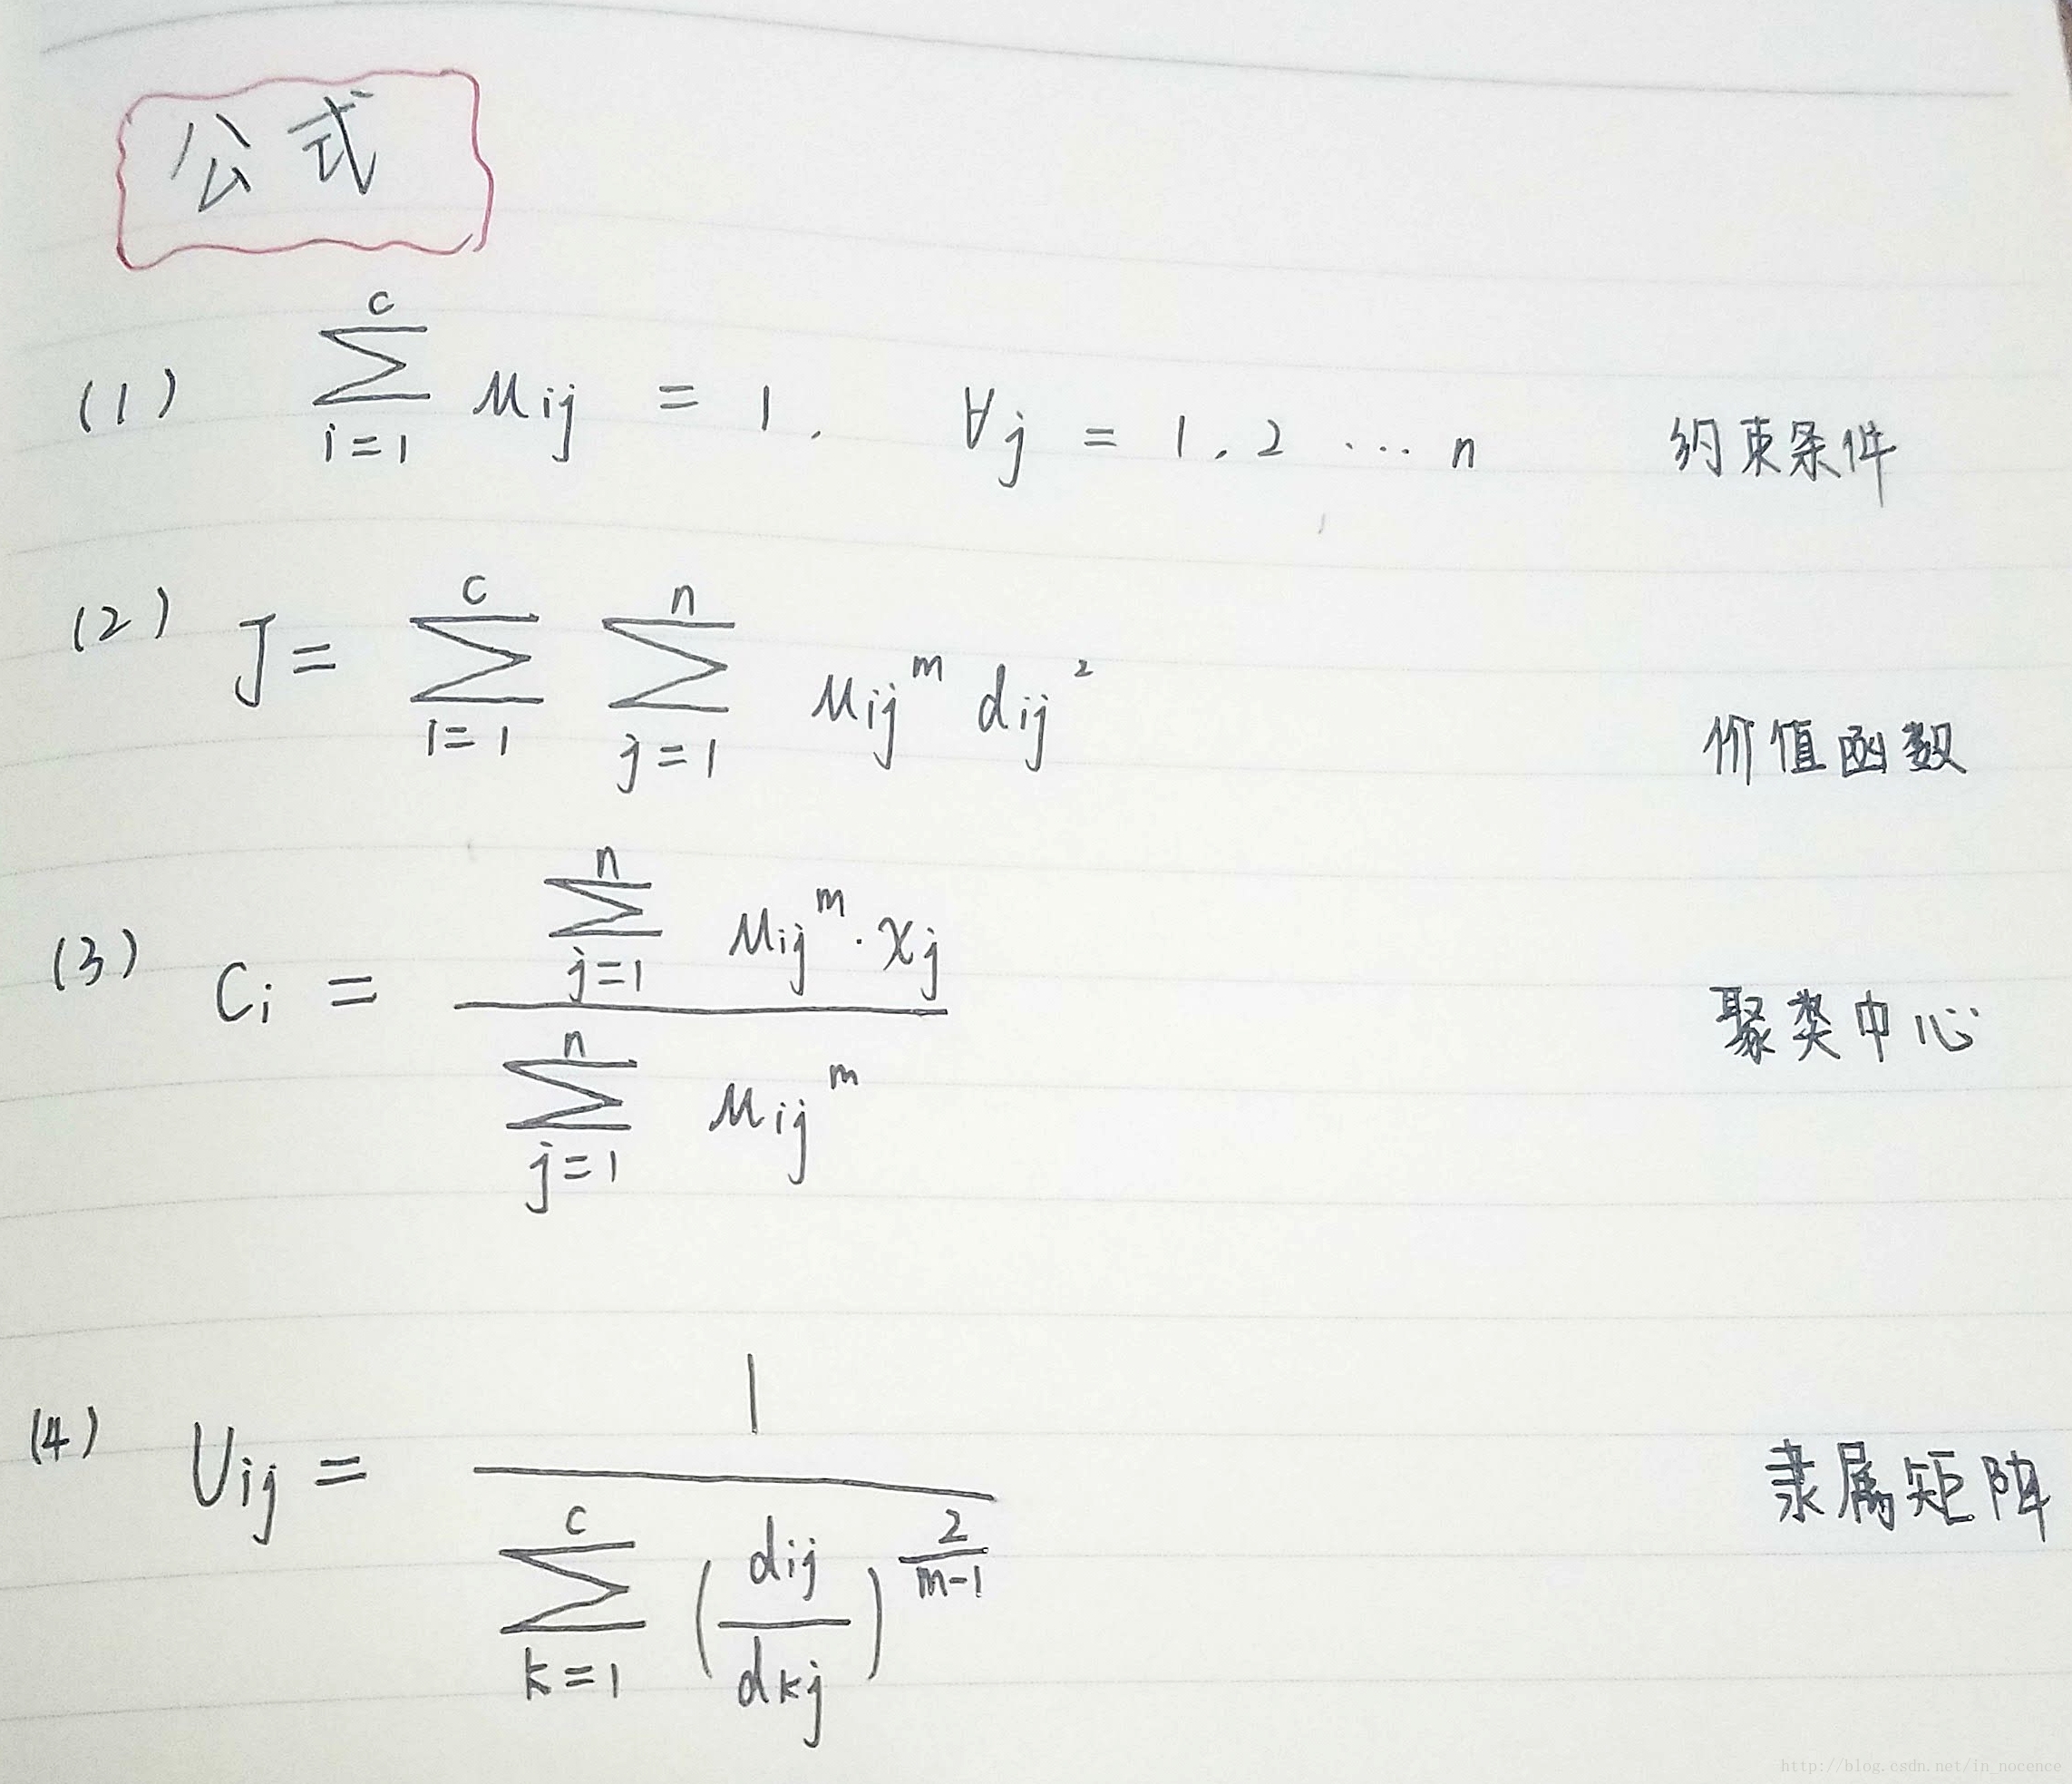 公式
(1) $\sum_{i=1}^{c} u_{ij} = 1, \quad \forall j = 1, 2 \cdots n$ 约束条件
(2) $J = \sum_{i=1}^{c} \sum_{j=1}^{n} u_{ij}^{m} d_{ij}^{2}$ 价值函数
(3) $C_i = \frac{\sum_{j=1}^{n} u_{ij}^{m} \cdot x_j}{\sum_{j=1}^{n} u_{ij}^{m}}$ 聚类中心
(4) $U_{ij} = \frac{1}{\sum_{k=1}^{c} \left( \frac{d_{ij}}{d_{kj}} \right)^{\frac{2}{m-1}}}$ 隶属矩阵
http://blog.csdn.net/in_nocence